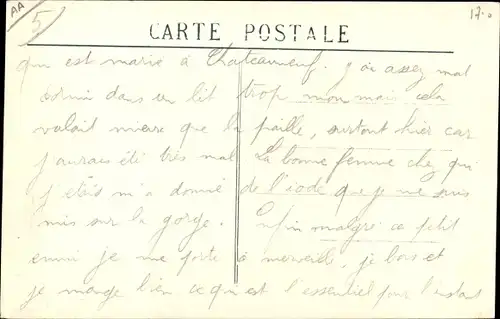 AA
5
17.0
CARTE POSTALE
qui est marié à Chateauneuf. j'ai assez mal
dormi dans un lit trop mou mais cela
valait mieux que la paille, surtout hier car
j'aurais été très mal La bonne femme chez qui
j'étais m'a donné de l'iode que je me suis
mis sur la gorge. Enfin malgré ce petit
ennui je me porte à merveille, je bois et
je mange bien ce qui est l'essentiel pour l'instant